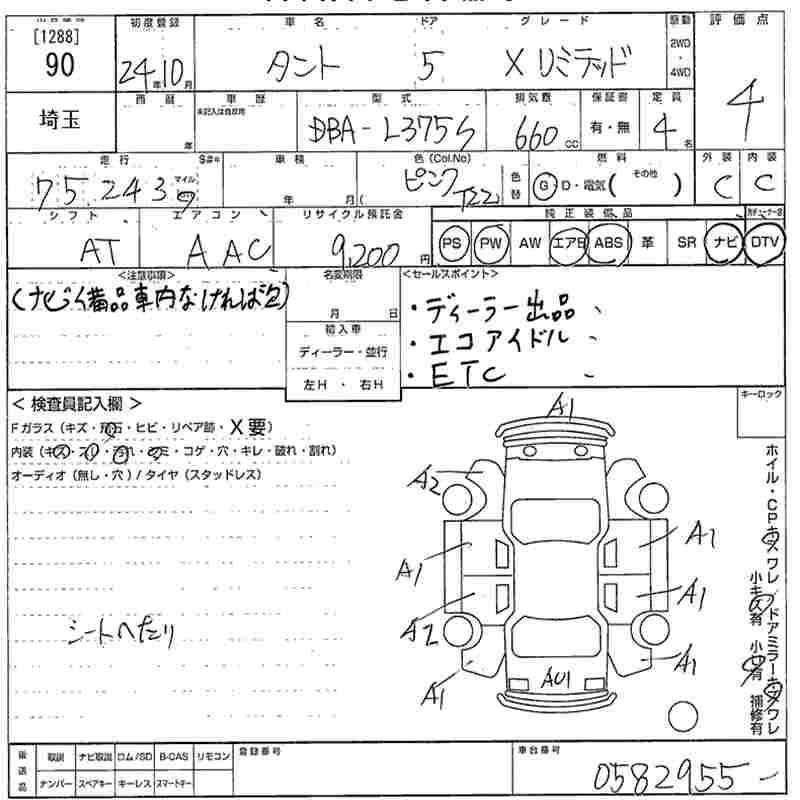 [1288] 初度登録 車名 ドア グレード 駆動 評価点
90 24年10月 タント 5 Xリミテッド 2WD・4WD 4
埼玉 西暦 年 車歴 未記入は自家用 型式 排気量 保証書 定員
DBA-L375S 660cc 有・無 4名
走行 S#* 車検 色(Col.No) 燃料 外装 内装
75,243 マイル 年 月( ピンク T22 色替 G・D・電気( その他 ) C C
シフト エアコン リサイクル預託金 純正装備品
AT AAC 9,200円 PS PW AW エアB ABS 革 SR ナビ DTV
<注意事項> 名変期限 <セールスポイント>
月 日 ・ディーラー出品、
輸入車 ・エコアイドル、
ディーラー・並行 ・ETC、
左H・右H
<検査員記入欄> キーロック
Fガラス(キズ・飛石・ヒビ・リペア跡・X要)
内装(キズ・スレ・汚れ・シミ・コゲ・穴・キレ・破れ・割れ)
オーディオ(無し・穴)/タイヤ(スタッドレス)
シートへたり
A1
A2
A1 A1
A2 A1
A1 AU1 A1
ホイル・CPキズワレ
ドアミラーキズワレ
小キズ有 小凹有 補修有
後送品 取説 ナビ取説 ロム/SD B-CAS リモコン 登録番号 車台番号
ナンバー スペアキー キーレス スマートキー 0582955